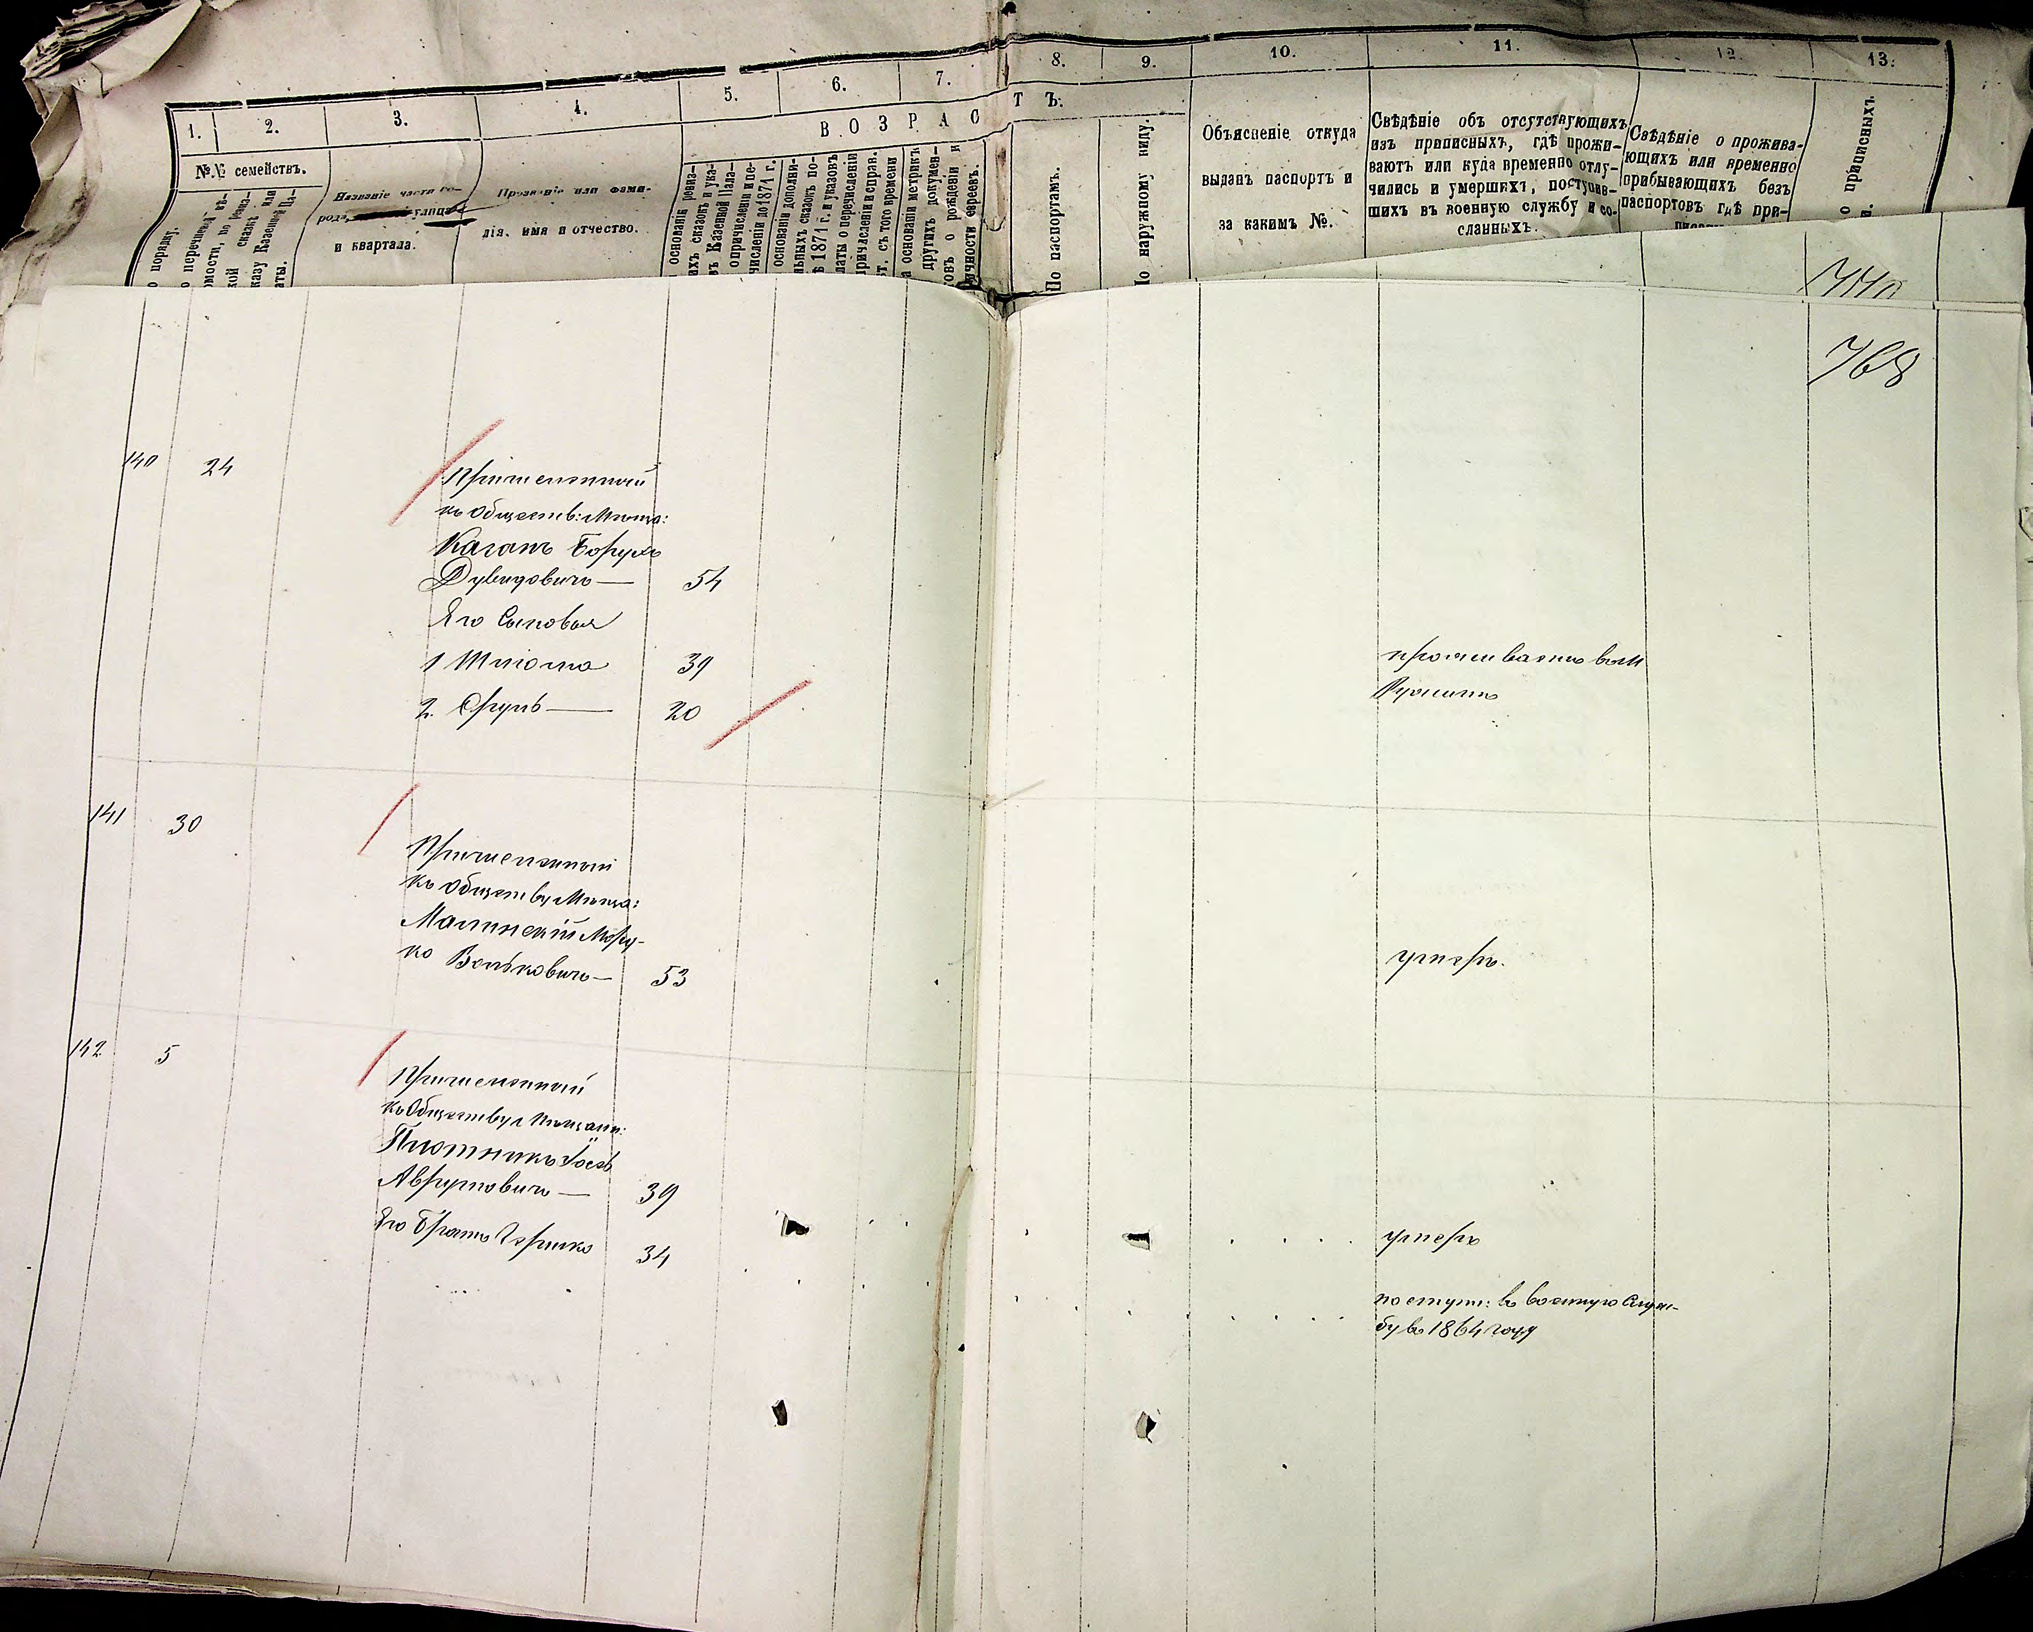 1. 2. 3. 4. 5. 6. 7. 8. 9. 10. 11. 12. 13.
ВОЗРАСТЪ.
№№ семействъ.
о порядку.
о перечневой вѣ-
омости, по ревиз-
кой сказкѣ или
казу Казенной Па-
аты.
Названіе части го-
рода, улицы
и квартала.
Прозваніе или фами-
лія, имя и отчество.
основаніи ревиз-
ихъ сказокъ и ука-
ъ Казенной Пала-
о причисленіи и пе-
численіи до 1871 г.
основаніи дополни-
льныхъ сказокъ по-
ѣ 1871 г. и указовъ
латы о перечисленіи
причисленіи и справ.
ст. съ того времени
а основаніи метрикъ
другихъ докумен-
овъ о рожденіи и
ичности евреевъ.
По паспортамъ.
о наружному виду.
Объясненіе откуда
выданъ паспортъ и
за какимъ №.
Свѣдѣніе объ отсутствующихъ
изъ приписныхъ, гдѣ прожи-
ваютъ или куда временно отлу-
чились и умершихъ, поступив-
шихъ въ военную службу и со-
сланныхъ.
Свѣдѣніе о прожива-
ющихъ или временно
прибывающихъ безъ
паспортовъ гдѣ при-
о приписныхъ
768
140 24
Причисленный
къ Обществ: Мѣща:
Каганъ Борухъ
Дувидовичъ — 54
Его Сыновья
1 Шліома 39 проживаетъ въ м
2. Сруль — 20
141 30
Причисленный
къ Обществу Мѣща:
Малинскій Мор-
ко Вольковичъ — 53 умеръ.
142 5
Причисленный
къ Обществу Мѣщани:
Плотникъ Іосъ
Аврумовичъ — 39 умеръ
Его Братъ Гершко 34 поступи: въ военную Служ-
бу въ 1864 году